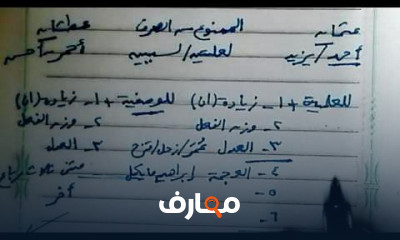 عثمان الممنوع من الصرف عطشان
أحمد/يزيد لعلمية/لسببين أحمر/أحسن
للعلمية + ١- زيادة (ان) للوصفية + ١- زيادة (ان)
٢- وزن الفعل ٢- وزن الفعل
٣- العدل عُمَر/زحل/قزح ٣- العدل
٤- العجمة ابراهيم مايكل مثنى ثلاث رباع
٥- أخر
٦-
معارف